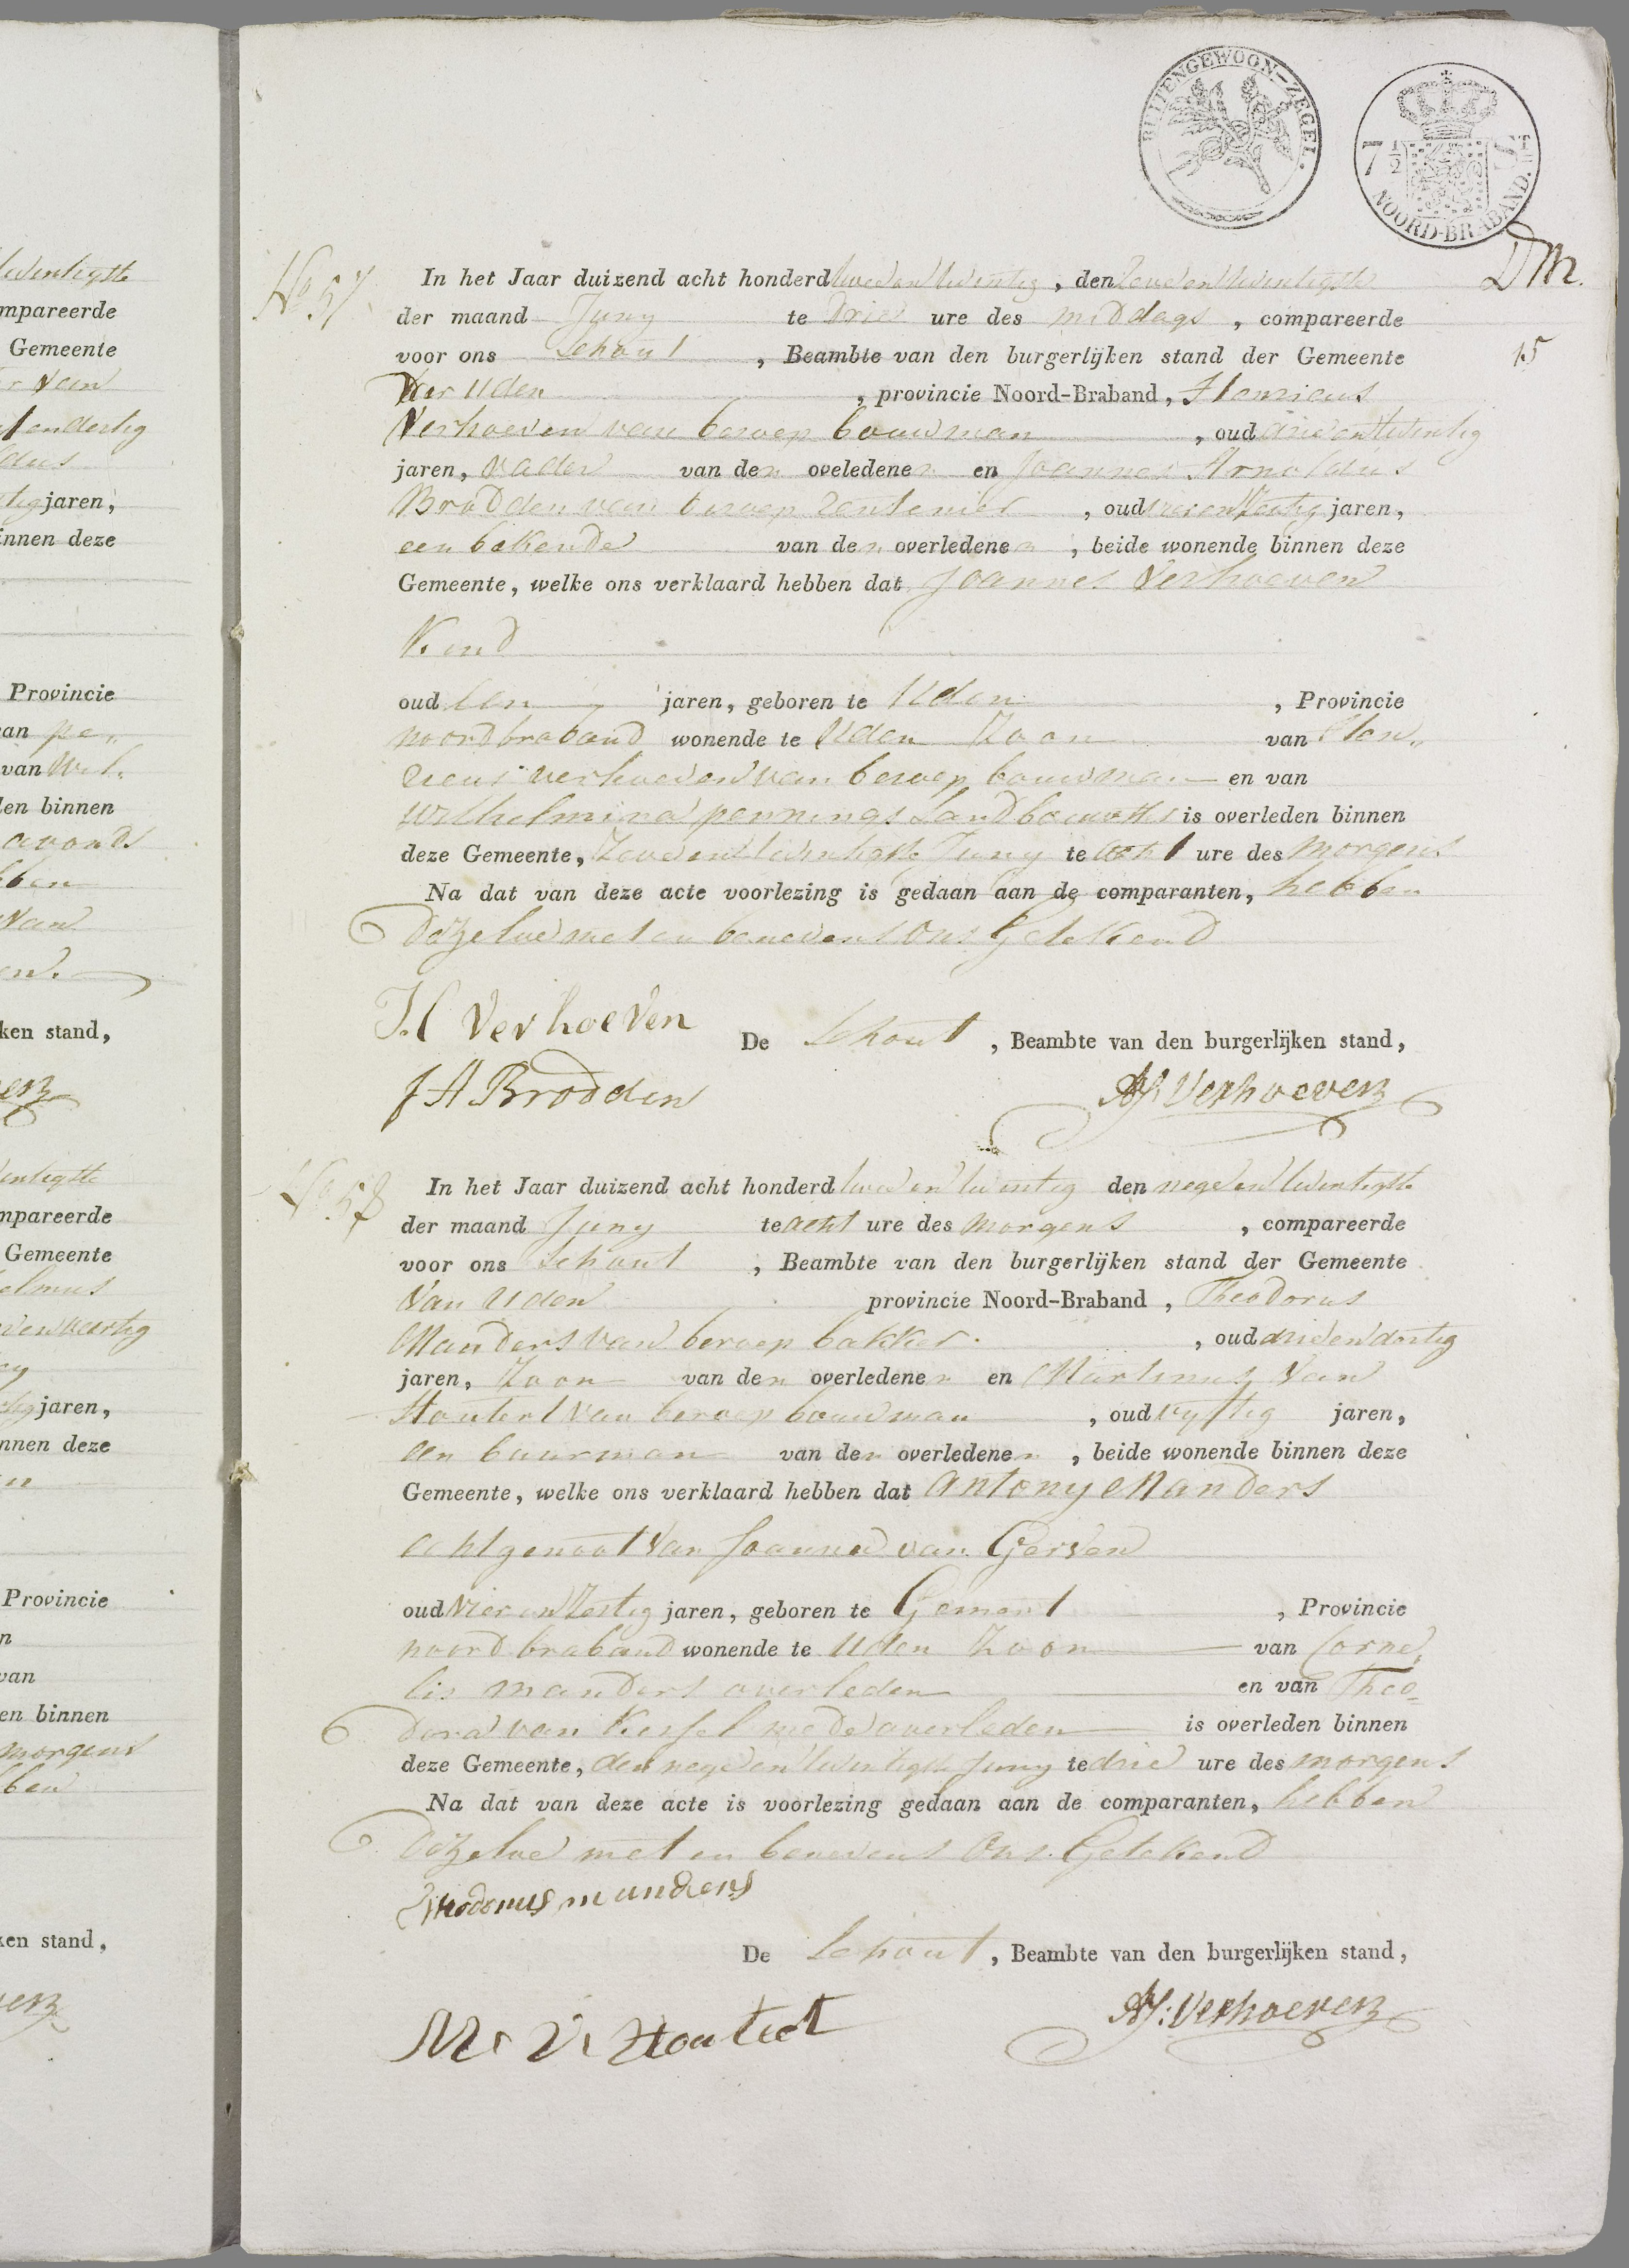 BUITENGEWOON-ZEGEL.
7 1/2 St.
NOORD-BRABAND.
DM.
15
No. 57
In het Jaar duizend acht honderd tweeentwintig, den zevenentwintigste
der maand Juny te Drie ure des middags, compareerde
voor ons Schout, Beambte van den burgerlijken stand der Gemeente
Uden, provincie Noord-Braband, Henricus
Verhoeven van beroep bouwman, oud drieentwintig
jaren, vader van den oveledenen en Joannes Arnoldus
Brodden van beroep rentenier, oud jaren,
een bekende van den overledenen, beide wonende binnen deze
Gemeente, welke ons verklaard hebben dat Joannes Verhoeven
Kind
oud een jaren, geboren te Uden, Provincie
noordbraband wonende te Uden Zoon van Hen,,
ricus verhoeven van beroep bouwman en van
Wilhelmina pennings Landbouwster is overleden binnen
deze Gemeente, Zevenentwintigste Juny te acht ure des morgens
Na dat van deze acte voorlezing is gedaan aan de comparanten, hebben
dezelve met en benevens ons Getekend
H Verhoeven
De Schout, Beambte van den burgerlijken stand,
J A Brodden
AJ. Verhoeven
No. 58
In het Jaar duizend acht honderd tweeentwintig den negenentwintigste
der maand Juny te acht ure des morgens, compareerde
voor ons Schout, Beambte van den burgerlijken stand der Gemeente
Van Uden provincie Noord-Braband, Theodorus
Manders van beroep bakker., oud drieendertig
jaren, Zoon van den overledenen en Martinus Van
Houtert van beroep bouwman, oud vyftig jaren,
een buurman van den overledenen, beide wonende binnen deze
Gemeente, welke ons verklaard hebben dat Antony Manders
echtgenoot van Joanna van Gerven
oud Vierenzestig jaren, geboren te Gemert, Provincie
noordbraband wonende te Uden Zoon van Corne,
lis manders overleden en van Theo-
dora van Kessel mede overleden is overleden binnen
deze Gemeente, den negenentwintigste Juny te drie ure des morgens
Na dat van deze acte is voorlezing gedaan aan de comparanten, hebben
dezelve met en benevens Ons Getekend
Theodorus manders
De Schout, Beambte van den burgerlijken stand,
AJ. Verhoeven
M V Houtert